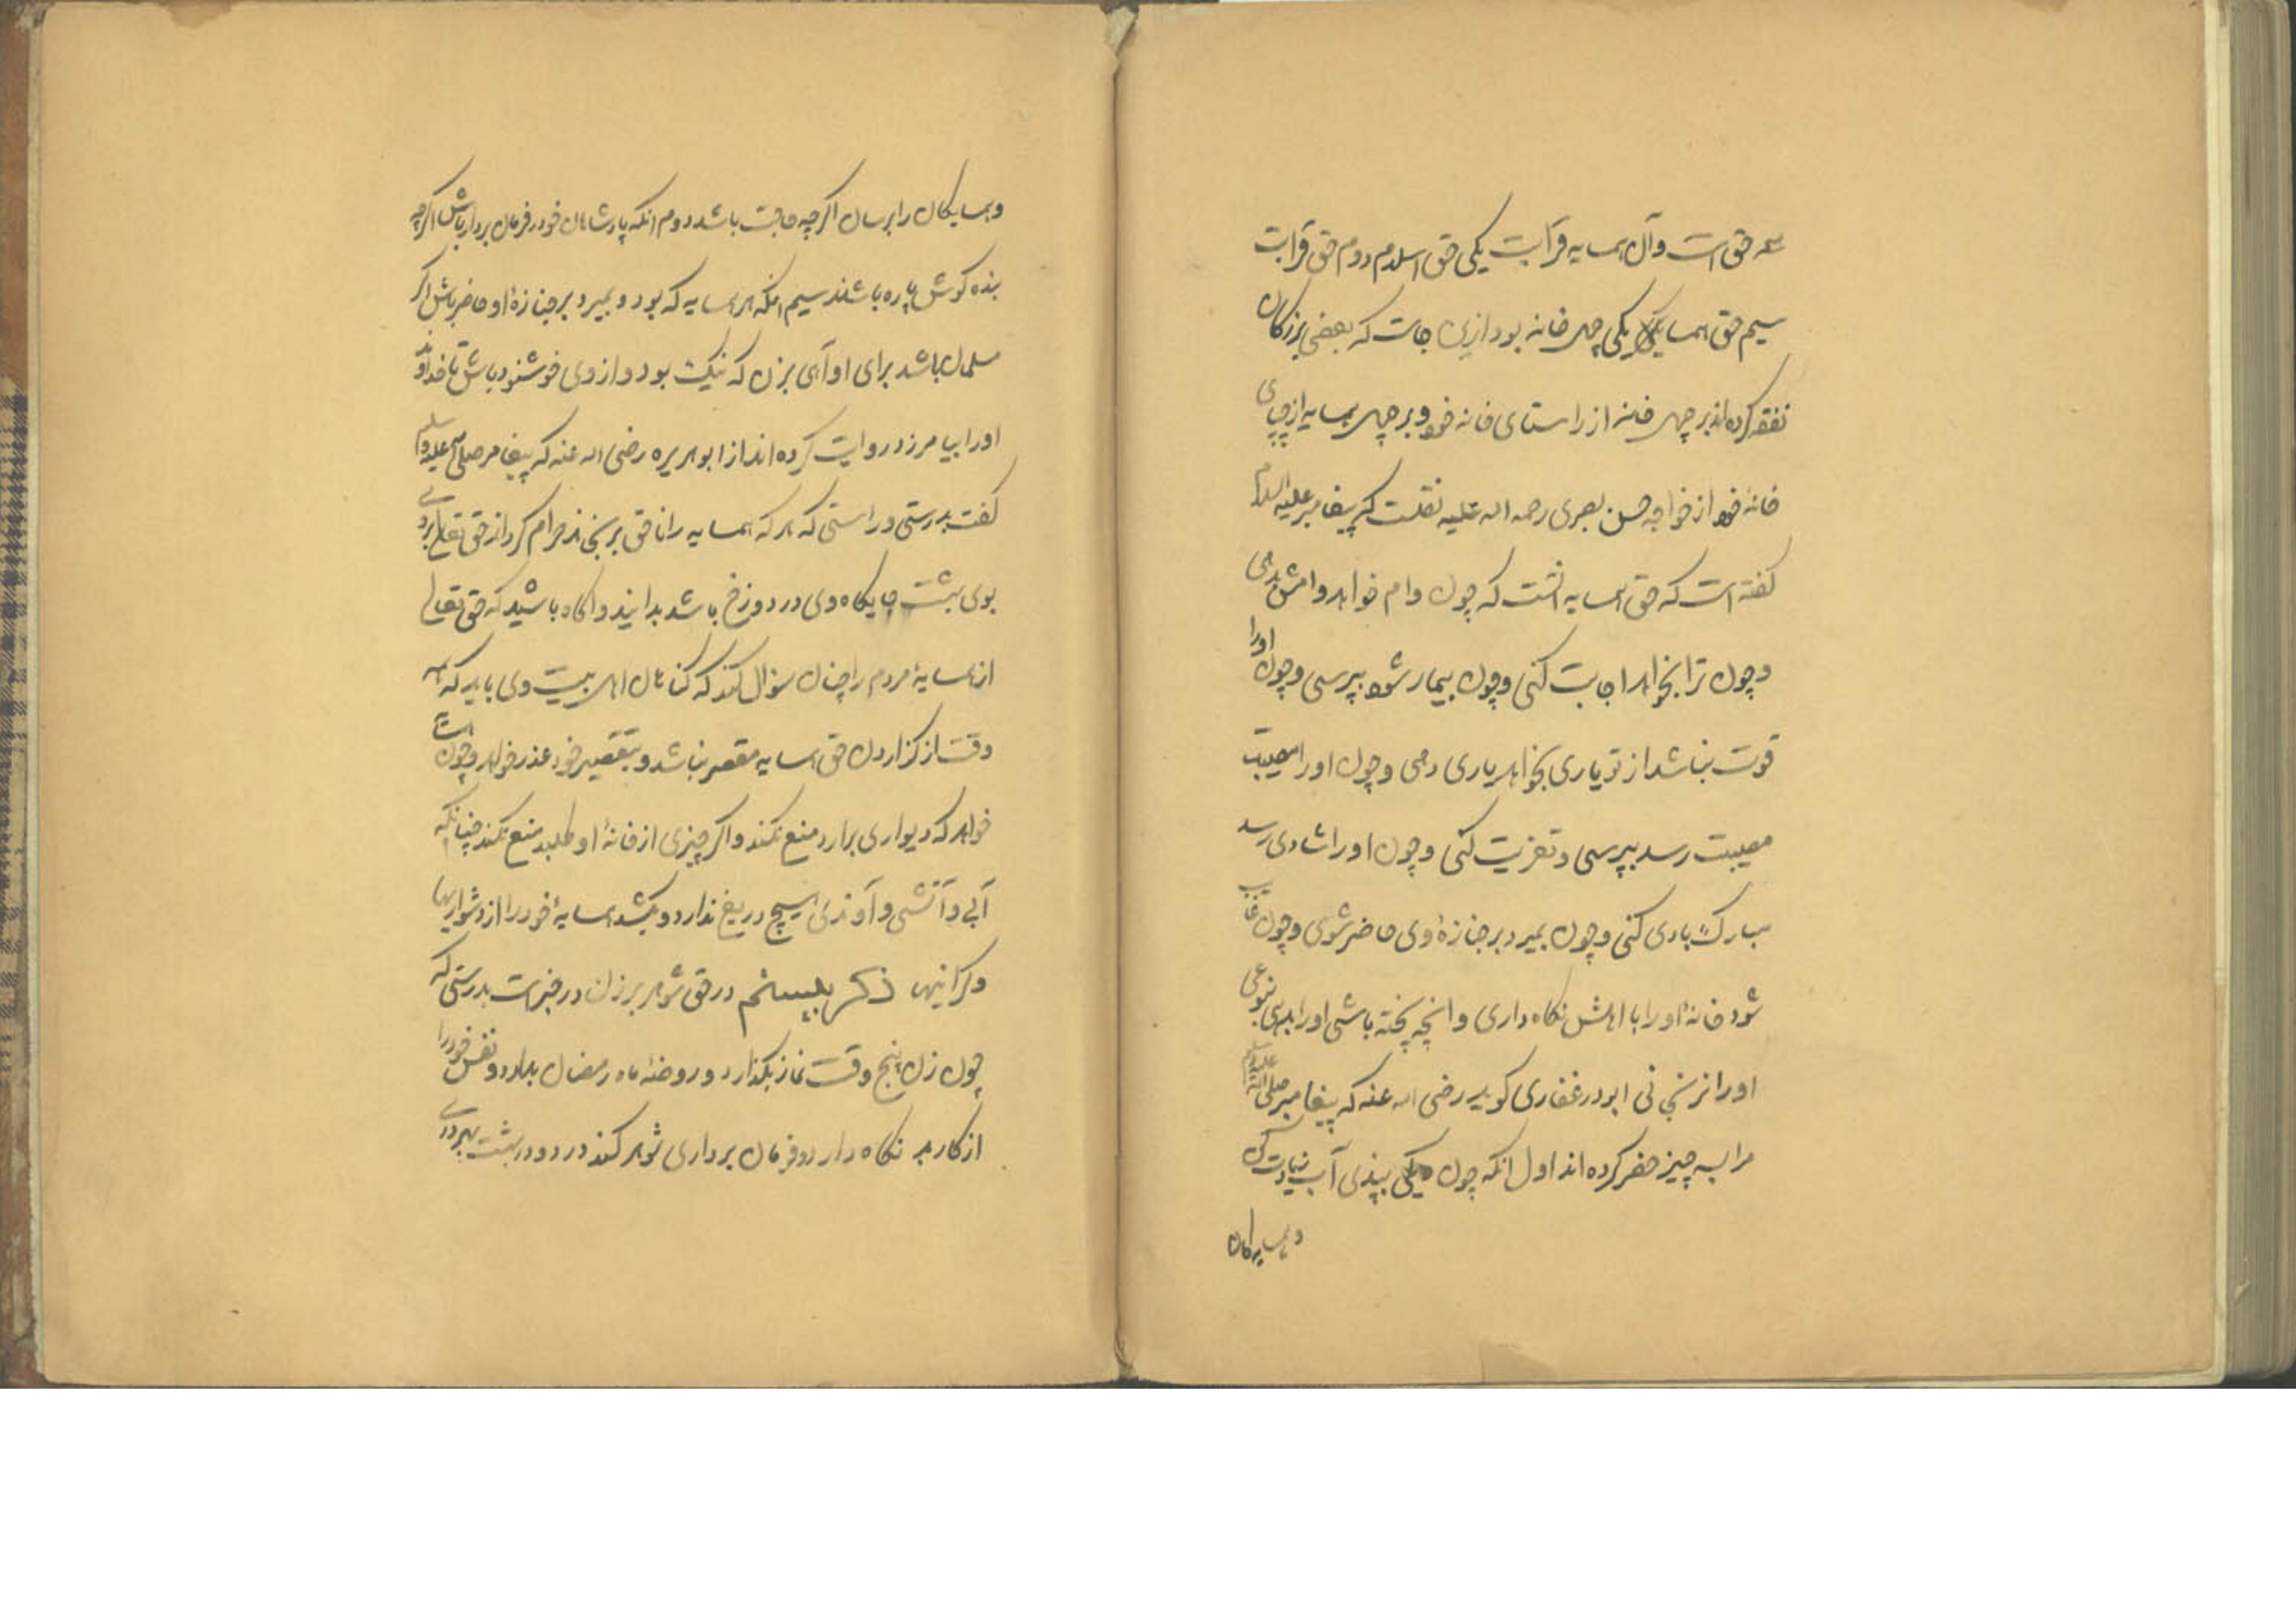 سه حق است و آن همسایه قرابت یکی حق اسلام دوم حق قرابت
سیم حق همسایکی یکی چهل خانه بود ازین جاست که بعضی بزرکان
نفقه کرده اند بر چهل خانه از راستای خانه خود و بر چهل همسایه از چپای
خانهٔ خود از خواجه حسن بصری رحمه الله علیه نقلست که پیغامبر علیه السلام
کفته است که حق همسایه انست که چون وام خواهد وامش دهی
و چون ترا بخواهد اجابت کنی و چون بیمار شود بپرسی و چون اورا
قوت نباشد از تو یاری بخواهد یاری دهی و چون اورا مصیبت
مصیبت رسد بپرسی و تعزیت کنی و چون اورا شادی رسد
مبارک بادی کنی و چون بمیرد بر جنازهٔ وی حاضر شوی و چون غایب
شود خانهٔ اورا با اهلش نکاه داری و انچه پخته باشی اورا بدهی بنوعی
اورا نرنجانی ابودر غفاری کوید رضی الله عنه که پیغامبر صلی الله علیه وسلم
مرا بسه چیز حفر کرده اند اول انکه چون دیکی بپزی آب زیادت کن
و همسایه کان
و همسایکان را برسان اکرچه حاجت باشد دوم انکه پادشاهان خود را فرمان بردار باش اکرچه
بنده کوش پاره باشند سیم انکه هر همسایه که بود و بمیرد بر جنازهٔ او حاضر باش اکر
مسلمان باشد برای او آهی بزن که نیک بود و از وی خوشنود باش تا خداوند
اورا بیامرزد روایت کرده اند از ابو هریره رضی الله عنه که پیغامبر صلی الله علیه وسلم
کفت بدرستی و راستی که هر که همسایه را ناحق برنجاند حرام کرداند حق تعالی بر وی
بوی بهشت جایکاه وی در دوزخ باشد بدانید و اکاه باشید که حق تعالی
از همسایهٔ مردم را چنان سؤال کند که کناهان اهل بیت وی باید که همه
وقت از کزاردن حق همسایه مقصر نباشد و بتقصیر خود عذر خواهد و چون همسایه
خواهد که دیواری برارد منع نکند و اکر چیزی از خانهٔ او طلبد منع نکند چنانکه
آبی و آتشی و آوندی هیچ دریغ ندارد و بکشد همسایهٔ خود را از دشواریها
و کرانیها ذکر بیستم در حق شوهر بر زن در خبرست بدرستی که
چون زن پنج وقت نماز بکذارد و روضهٔ ماه رمضان بدارد و نفس خود را
از کار بد نکاه دارد و فرمان برداری شوهر کند در رود در بهشت بهر دری